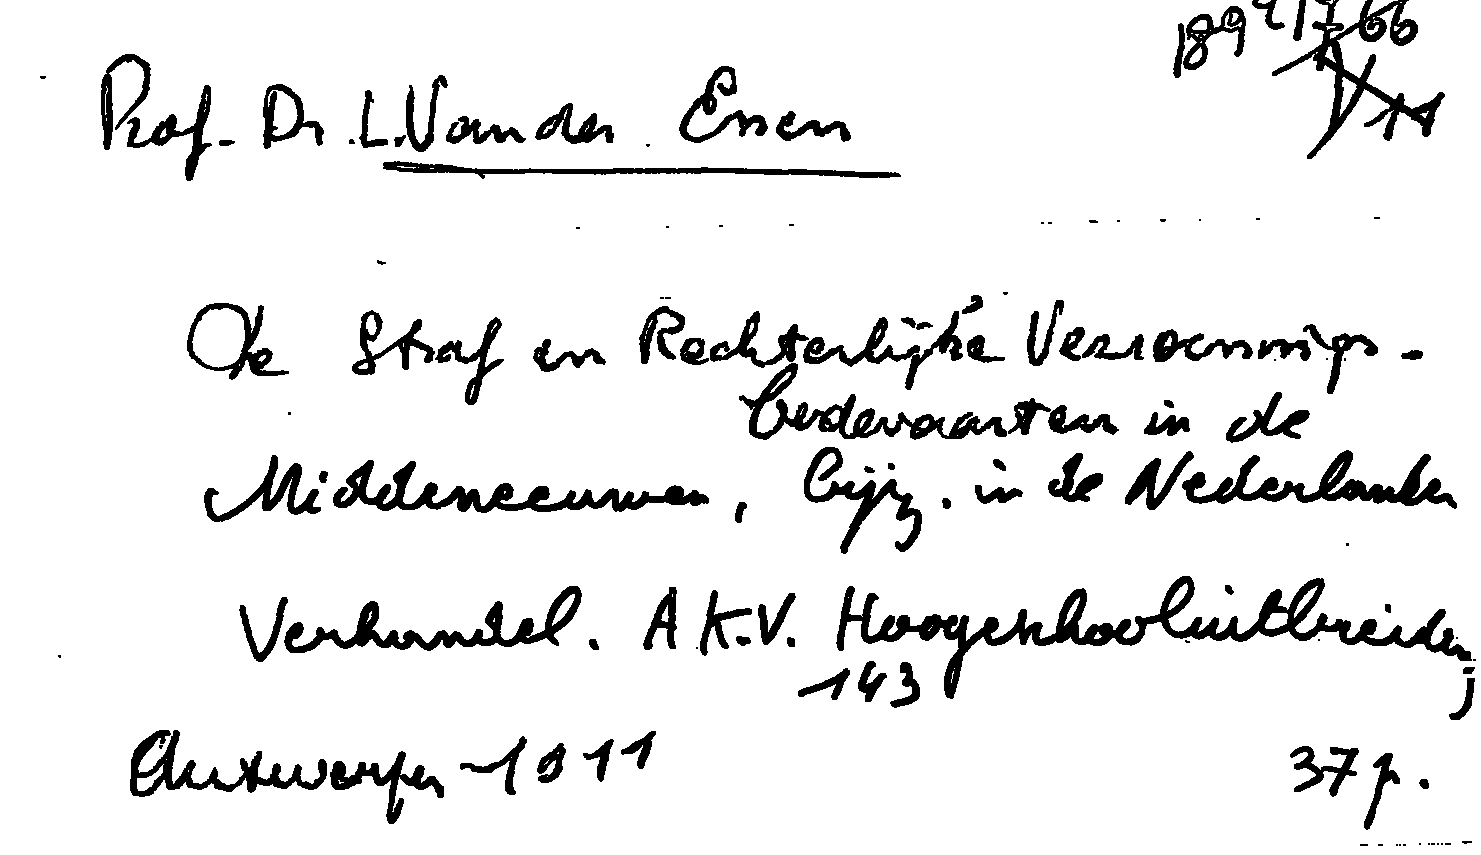 Prof. Dr. L. Van der Essen
De Straf en Rechterlijke Verzoenings-
bedevaarten in de
Middeneeuwen, bijz. in de Nederlanden
Verhandel. A.K.V. Hoogeschooluitbreiding,
143
Antwerpen 1911 37 p.